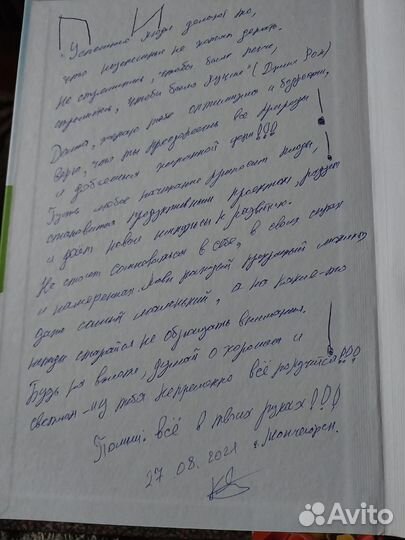 П И
"Успешные люди делают то,
что неуспешные не хотят делать.
Не стремитесь, чтобы было легче,
стремитесь, чтобы было лучше" (Джим Рон)
желаю тебе оптимизма и бодрости,
Верь, что ты преодолеешь все преграды
и добьёшься желанной цели!!!
Пусть любое начинание приносит плоды,
становится продуктивным проектом,
и даёт новые импульсы к развитию.
Не стоит сомневаться в себе, в своих силах
и намерениях. Лови каждый
даже самый маленький, а на какие-то
неудачи старайся не обращать внимания.
Будь на высоте, думай о хорошем и
светлом - и у тебя непременно всё получится!!!
Помни: всё в твоих руках!!!
27.08.2021 г. Мончегорск.
Avito